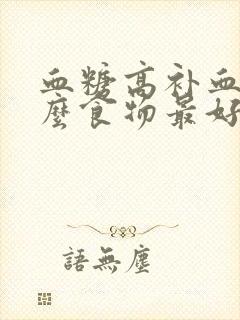 血糖高补血
麼食物最好
語無塵